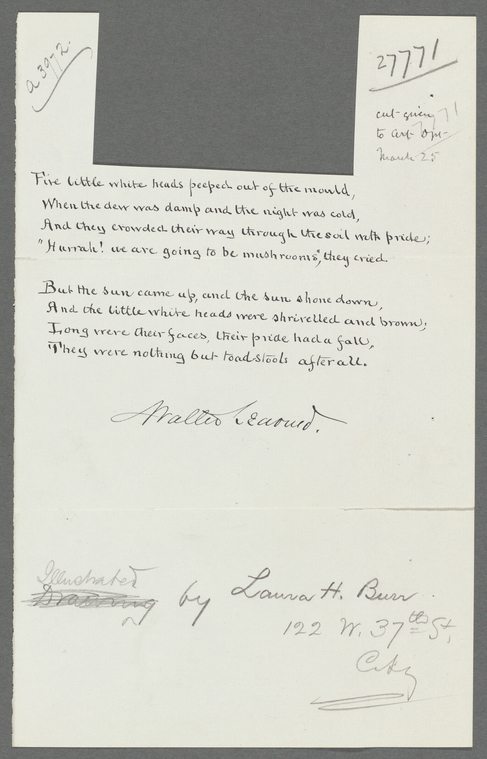 a 39-2.
27771
cut given
to art Dpt.
March 25
Five little white heads peeped out of the mould,
When the dew was damp and the night was cold,
And they crowded their way through the soil with pride;
"Hurrah! we are going to be mushrooms", they cried.
But the sun came up, and the sun shone down,
And the little white heads were shrivelled and brown;
Long were their faces, their pride had a fall,
They were nothing but toadstools after all.
Walter Learned.
Illustrated
by Laura H. Burr
122 W. 37th St,
City